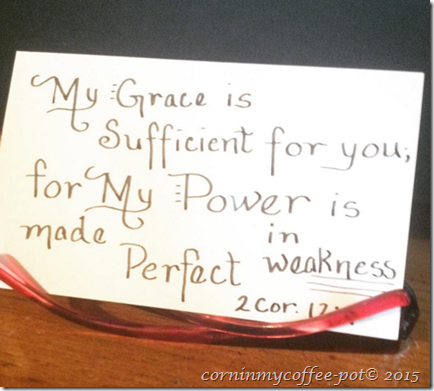 My Grace is
Sufficient for you;
for My Power is
made in
Perfect weakness
2 Cor.
corninmycoffee-pot© 2015